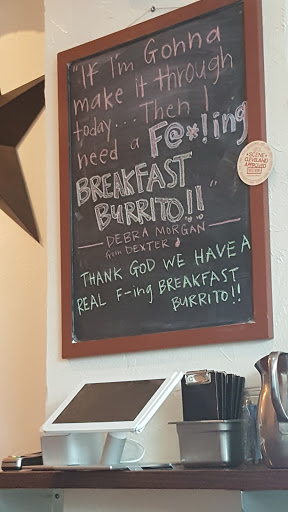 "If I'm Gonna
make it through
today... Then I
need a F@*!ing
BREAKFAST
BURRITO!!"
DEBRA MORGAN
from DEXTER
THANK GOD WE HAVE A
REAL F-ing BREAKFAST
BURRITO!!
SCENE
CLEVELAND
APPROVED